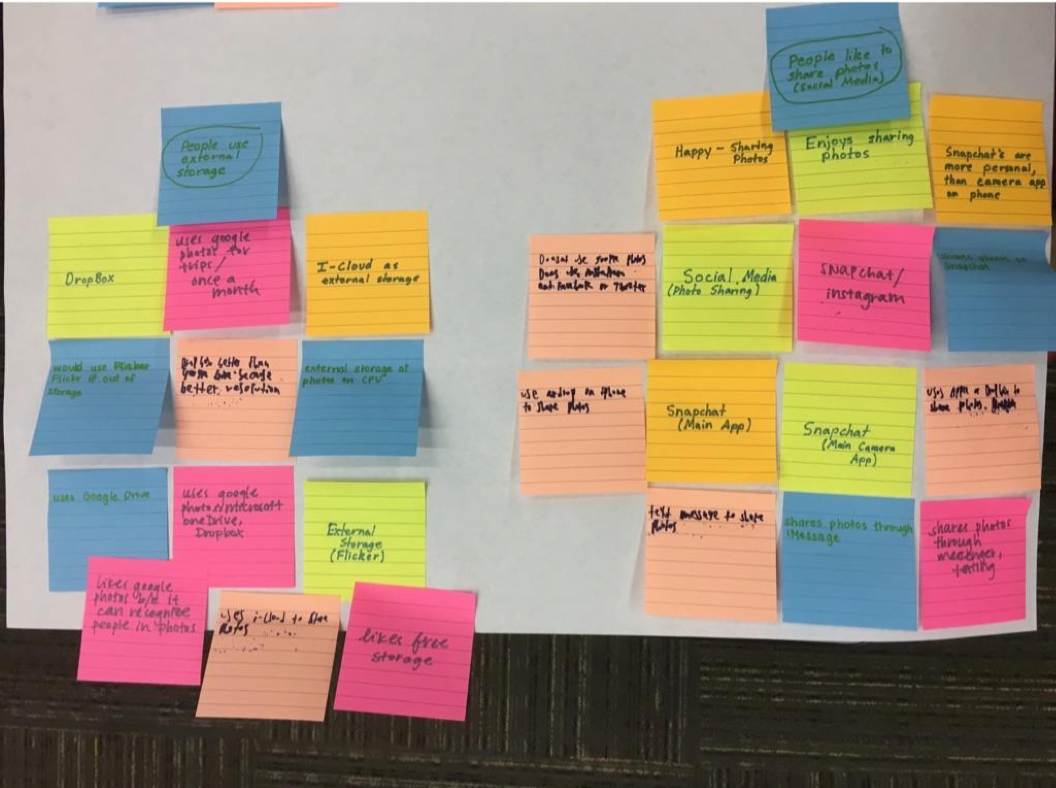 People use
external
storage
DropBox
uses google
photos for
trips/
once a
month
I-Cloud as
external storage
would use Flicker
Flickr if out of
storage
better than
better resolution
external storage of
photos on CPU
uses Google Drive
uses google
photos/microsoft
oneDrive,
Dropbox
External
Storage
(Flicker)
likes google
photos b/c it
can recognize
people in photos
uses i-cloud to store
photos
likes free
storage
People like to
share photos
(Social Media)
Happy - Sharing
Photos
Enjoys sharing
photos
Snapchat's are
more personal,
than camera app
on phone
Does use
not facebook or Twitter
Social Media
(Photo Sharing)
Snapchat/
instagram
shares photos on
Snapchat
use airdrop on iphone
to share photos
Snapchat
(Main App)
Snapchat
(Main Camera
App)
uses to
share photos.
text message to share
photos
shares photos through
iMessage
shares photos
through
messenger,
texting